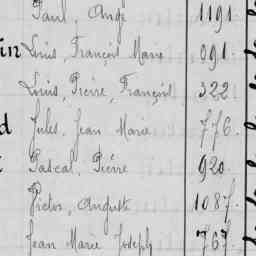 Paul, Ange 1191
in Louis, François Marie 091.
Louis, Pierre, François 322
d Jules, Jean Marie 776.
Pascal, Pierre 920.
Victor, Auguste 1087.
Jean Marie Joseph 767.